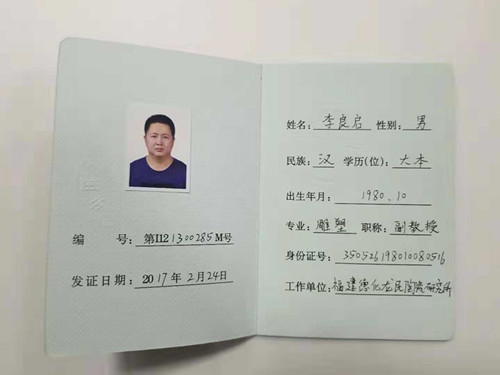 编 号: 第I121300285M号
发证日期: 2017年2月24日
姓名: 李良启 性别: 男
民族: 汉 学历(位): 大本
出生年月: 1980.10
专业: 雕塑 职称: 副教授
身份证号: 350526198010080516
工作单位: 福建德化龙民陶院研究所